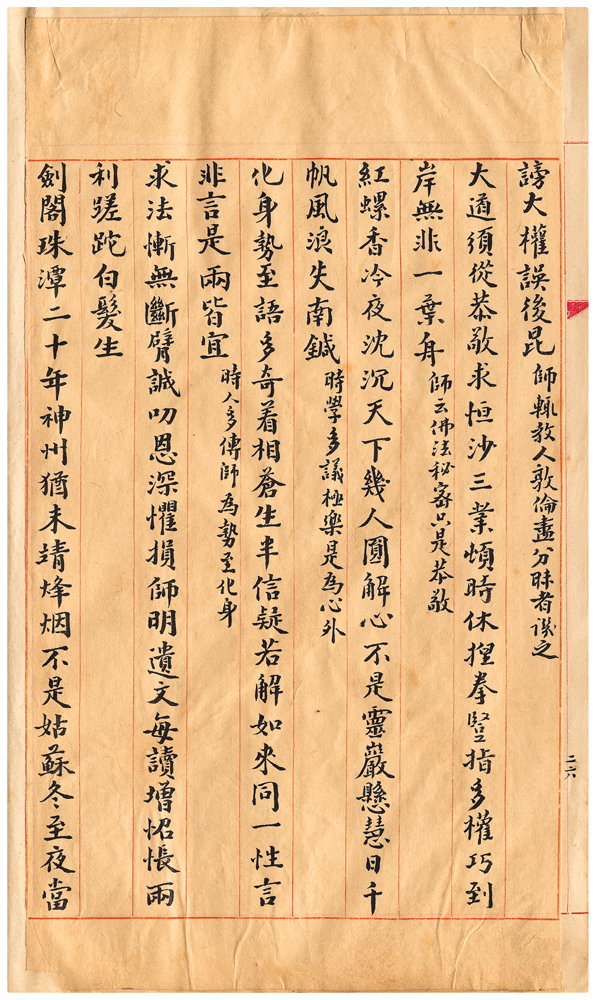 謗大權誤後昆師輒教人敦倫盡分昧者譏之
大道須從恭敬求恒沙三業頓時休揑拳豎指多權巧到
岸無非一葉舟師云佛法秘密只是恭敬
紅螺香冷夜沈沉天下幾人圓解心不是靈巖懸慧日千
帆風浪失南鍼時學多議極樂是為心外
化身勢至語多奇着相蒼生半信疑若解如來同一性言
非言是兩皆宜時人多傳師為勢至化身
求法慚無斷臂誠叨恩深懼損師明遺文每讀增怊悵兩
利蹉跎白髮生
劍閣珠潭二十年神州猶未靖烽烟不是姑蘇冬至夜當
二六